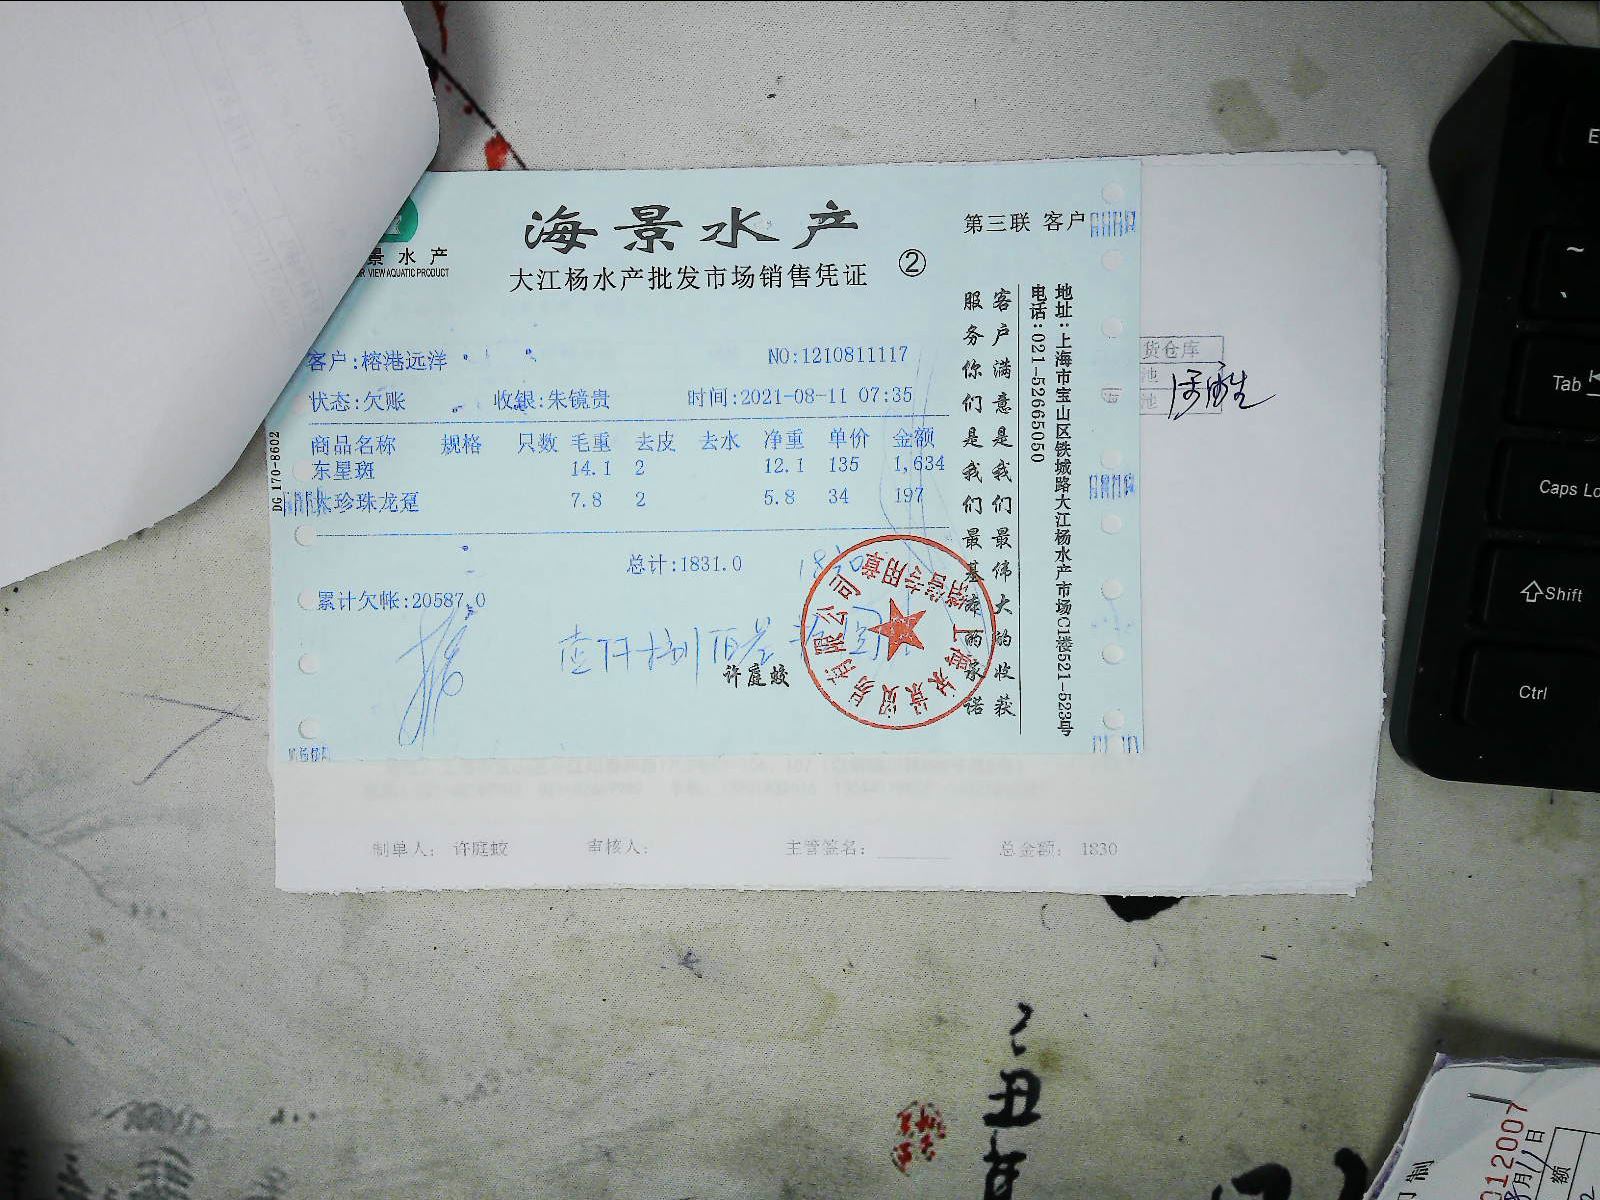 海景水产
第三联 客户
景水产
VIEW AQUATIC PRODUCT
大江杨水产批发市场销售凭证 ②
客户:榕港远洋
NO:1210811117
状态:欠账 收银:朱镜贵 时间:2021-08-11 07:35
商品名称 规格 只数 毛重 去皮 去水 净重 单价 金额
东星斑 14.1 2 12.1 135 1,634
大珍珠龙趸 7.8 2 5.8 34 197
总计:1831.0
累计欠帐:20587.0
许庭蛟
客户满意是我们最伟大的收获
服务你们是我们最基本的承诺
地址:上海市宝山区铁城路大江杨水产市场C1楼521-523号
电话:021-52665050
DG 170-8602
货仓库
池
池
制单人: 许庭蛟 审核人: 主管签名: 总金额: 1830
E
~
Tab
Caps Lo
Shift
Ctrl
丑
012007
月11日
额
制